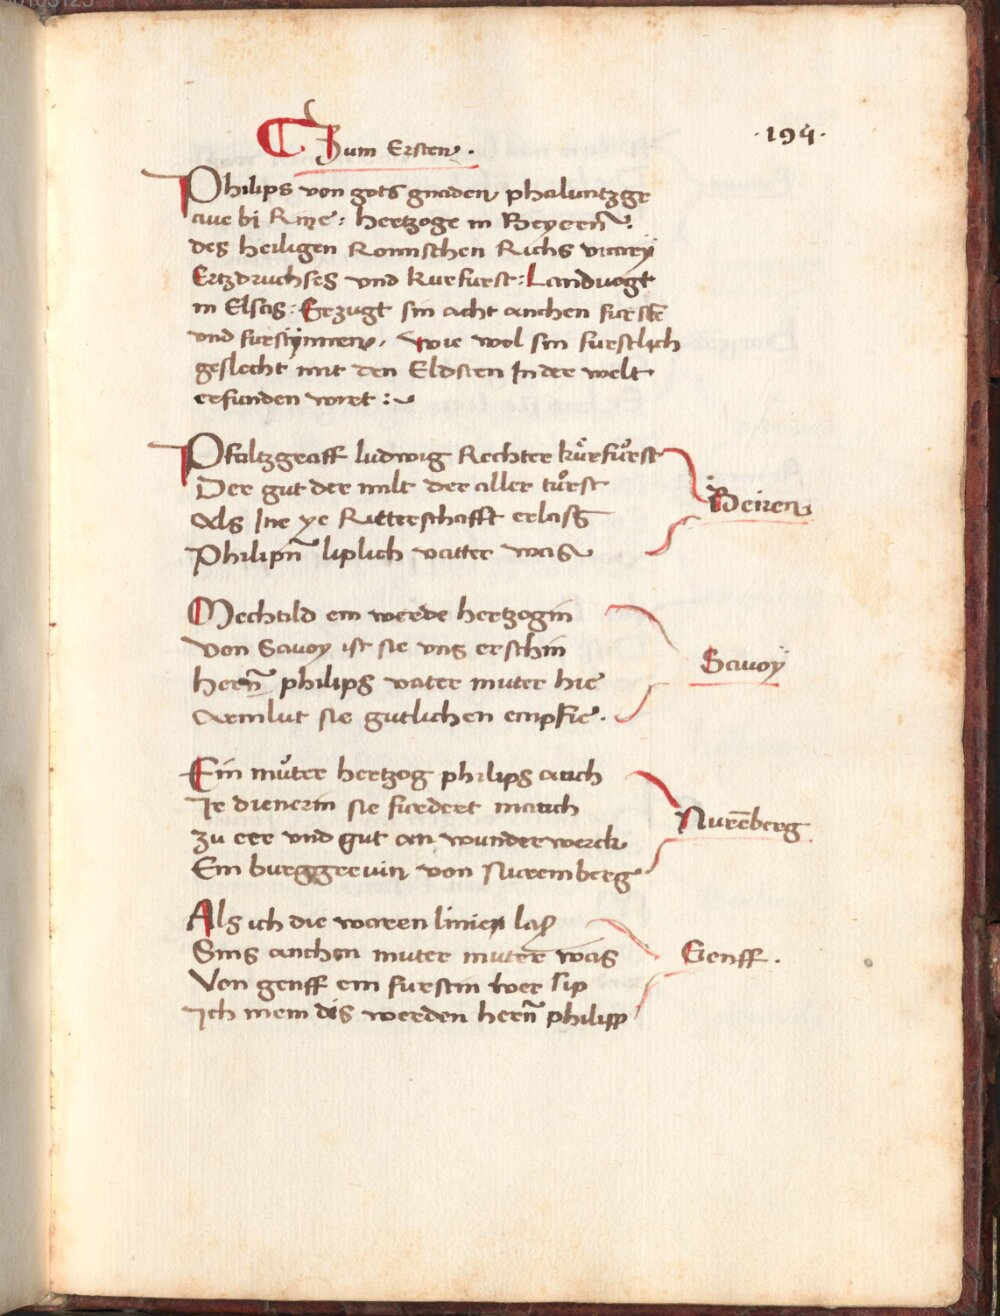 ·194·
Zum Ersten ·
Philips von gots gnaden phaluntzgr
aue bij Rine : hertzoge in Beyeern̄ ·
des heiligen Romischen Richs vicary
Ertzdruchses vnd kurfurst : Landuogt
in Elsas : Erzugt sin acht anchen furstē
vnd furstynnen, wie wol sin furstlich
geslecht mit den Eldsten In der welt
erfunden wirt :~
Pfaltzgraff ludwig Rechter kürfu̇rst
Der gut der milt der aller tu̇rst
Als Ine ye Ritterschafft erlass
Philipn̄ liplich vatter was
Beiren
Mechtild ein werde hertzogin
Von Sauoy ist sie vns erschin
hern̄ philips vater muter hie
Armlut sie gutlichen empfie ·
Sauoy
Ein mu̇ter hertzog philips auch
Ir dienerin sie furdert mauch
zu eer vnd gut an wunderwerck
Ein burggreuin von Nuremberg
Nurēberg
Als ich die waren linien las
Sins anchen muter muter was
Von genff ein furstin ir lip
Ich mein des werden hern̄ philipp
Genff ·